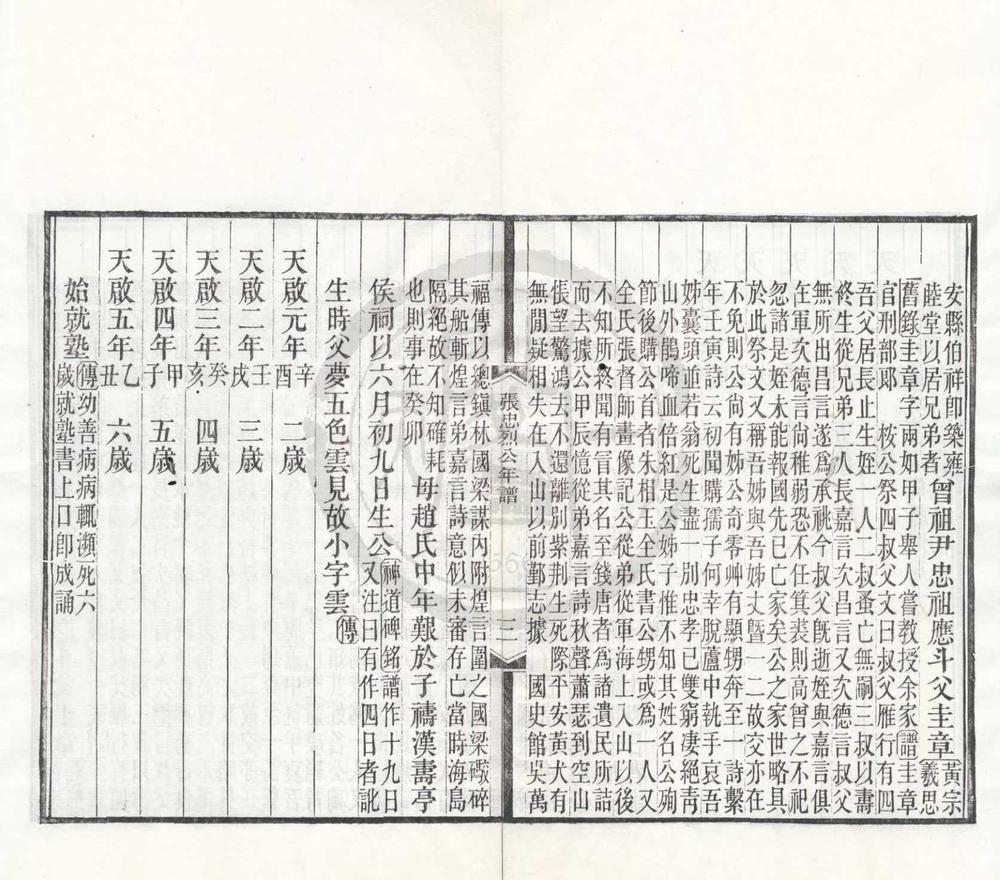 安縣伯祥卽築雍
睦堂以居兄弟者曾祖尹忠祖應斗父圭章黃宗
羲思
舊錄圭章字兩如甲子舉人嘗教授余家譜圭章
官刑部郎 桉公祭四叔父文曰叔父雁行有四
吾父居長止生姪一人二叔蚤亡無嗣三叔以壽
終生從兄弟三人長嘉言次昌言又次德言叔父
無所出昌言遂爲承祧今叔父旣逝姪與嘉言俱
在軍次德言尚稚弱恐不任箕裘則高曾之不祀
忽諸是姪未能報國先已亡家矣公之家世略具
於此祭文又稱吾姊與吾姊丈暨一二故交亦在
不免則公尚有姊公奇零艸有顯甥奔至 詩繫
年壬寅詩云初聞購孺子何幸脫蘆中執手哀吾
姊囊頭並若翁死生盡一別忠孝已雙窮凄絕靑
山外鵑啼血倍紅是公姊子惟不知其姓名公殉
節後購公首者朱相玉全氏書公甥或爲一人又
全氏張督師畫像記公從弟從軍海上入山以後
不知所終聞有冒其名至錢唐者爲諸遺民所詰
而去據公甲辰憶從弟嘉言詩秋聲蕭瑟到空山
悵望驚鴻去不還離別紫荆生死際平安黃犬有
無閒疑相失在入山以前鄞志據 國史館吳萬
張忠烈公年譜 三
福傳以總鎮林國梁謀內附煌言圍之國梁礮碎
其船斬煌言弟嘉言詩意似未審存亡當時海島
隔絕故不知確耗
也則事在癸卯 母趙氏中年艱於子禱漢壽亭
侯祠以六月初九日生公神道碑銘譜作九日
又注曰有作四日者訛
生時父夢五色雲見故小字雲傳
天啟元年辛酉 二歲
天啟二年壬戌 三歲
天啟三年癸亥 四歲
天啟四年甲子 五歲
天啟五年乙丑 六歲
始就塾傳幼善病病輒瀕死六
歲就塾書上口卽成誦